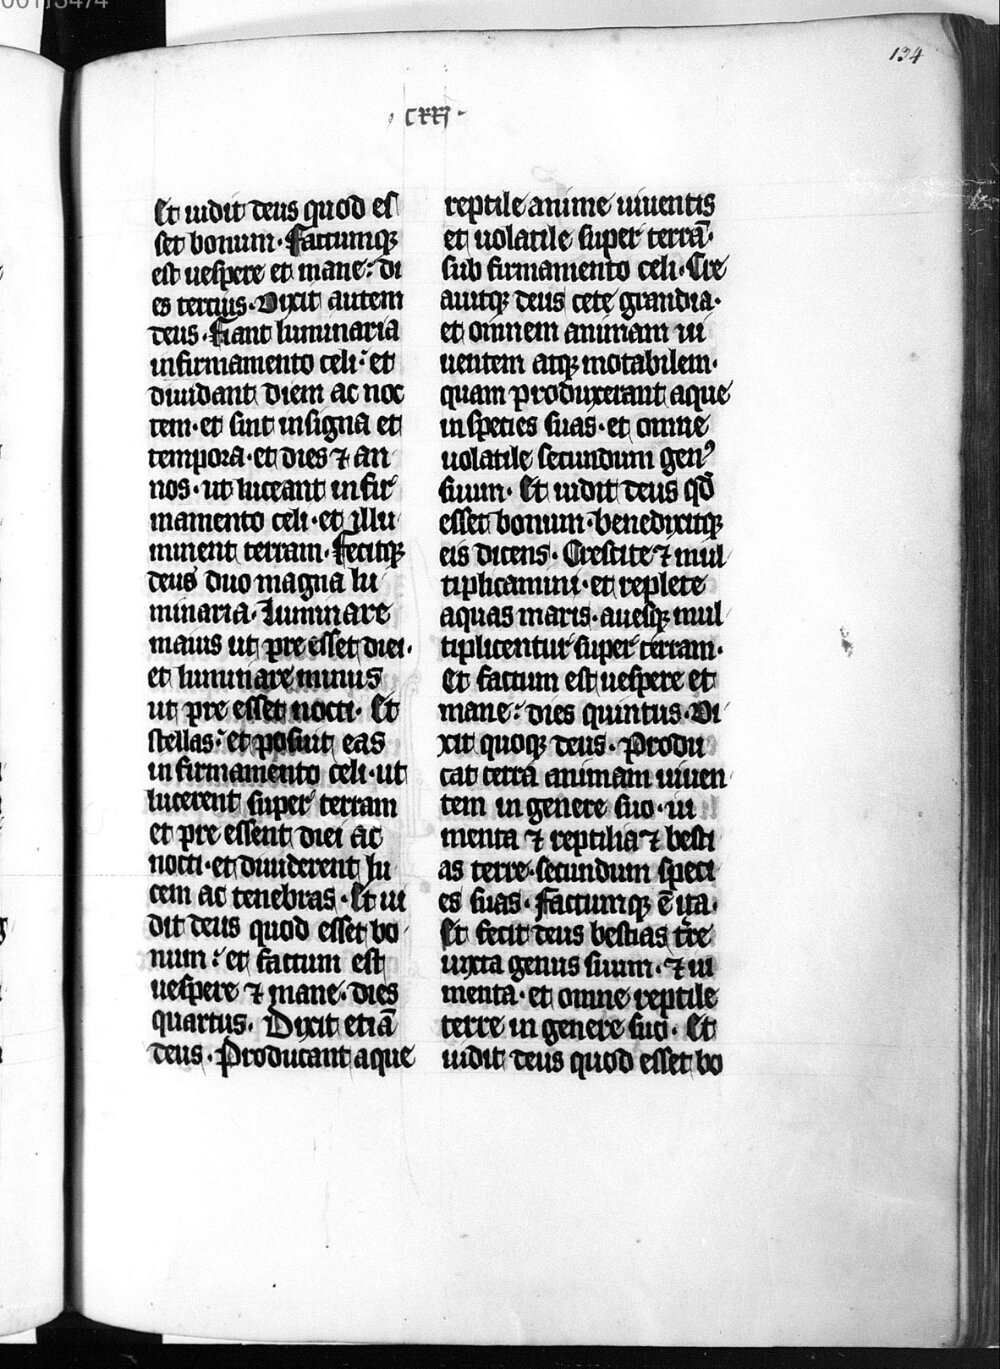 134
·cxxj·
Et uidit deus quod es
set bonum· Factumqꝫ
est uespere et mane: di
es tercius· Dixit autem
deus· Fiant luminaria
in firmamento celi: et
diuidant diem ac noc
tem· et sint in signa et
tempora· et dies ⁊ an
nos· ut luceant in fir
mamento celi· et illu
minent terram· Fecitqꝫ
deus duo magna lu
minaria· Luminare
maius ut pre esset diei·
et luminare minus
ut pre esset nocti· Et
stellas: et posuit eas
in firmamento celi· ut
lucerent super terram
et pre essent diei ac
nocti· et diuiderent lu
cem ac tenebras· Et ui
dit deus quod esset bo
num: et factum est
uespere ⁊ mane· dies
quartus· Dixit etiā
deus· Producant aque
reptile anime uiuentis
et uolatile super terrā·
sub firmamento celi· Cre
auitqꝫ deus cete grandia·
et omnem animam ui
uentem atqꝫ motabilem·
quam produxerant aque
in species suas· et omne
uolatile secundum genꝰ
suum· Et uidit deus qd̄
esset bonum· benedixitqꝫ
eis dicens· Crescite ⁊ mul
tiplicamini· et replete
aquas maris· auesqꝫ mul
tiplicentur super terram·
Et factum est uespere et
mane: dies quintus· Di
xit quoqꝫ deus· Produ
cat terra animam uiuen
tem in genere suo· iu
menta ⁊ reptilia ⁊ besti
as terre· secundum speci
es suas· Factumqꝫ ē ita·
Et fecit deus bestias tr̄e
iuxta genus suum· ⁊ iu
menta· et omne reptile
terre in genere suo· Et
uidit deus quod esset bo